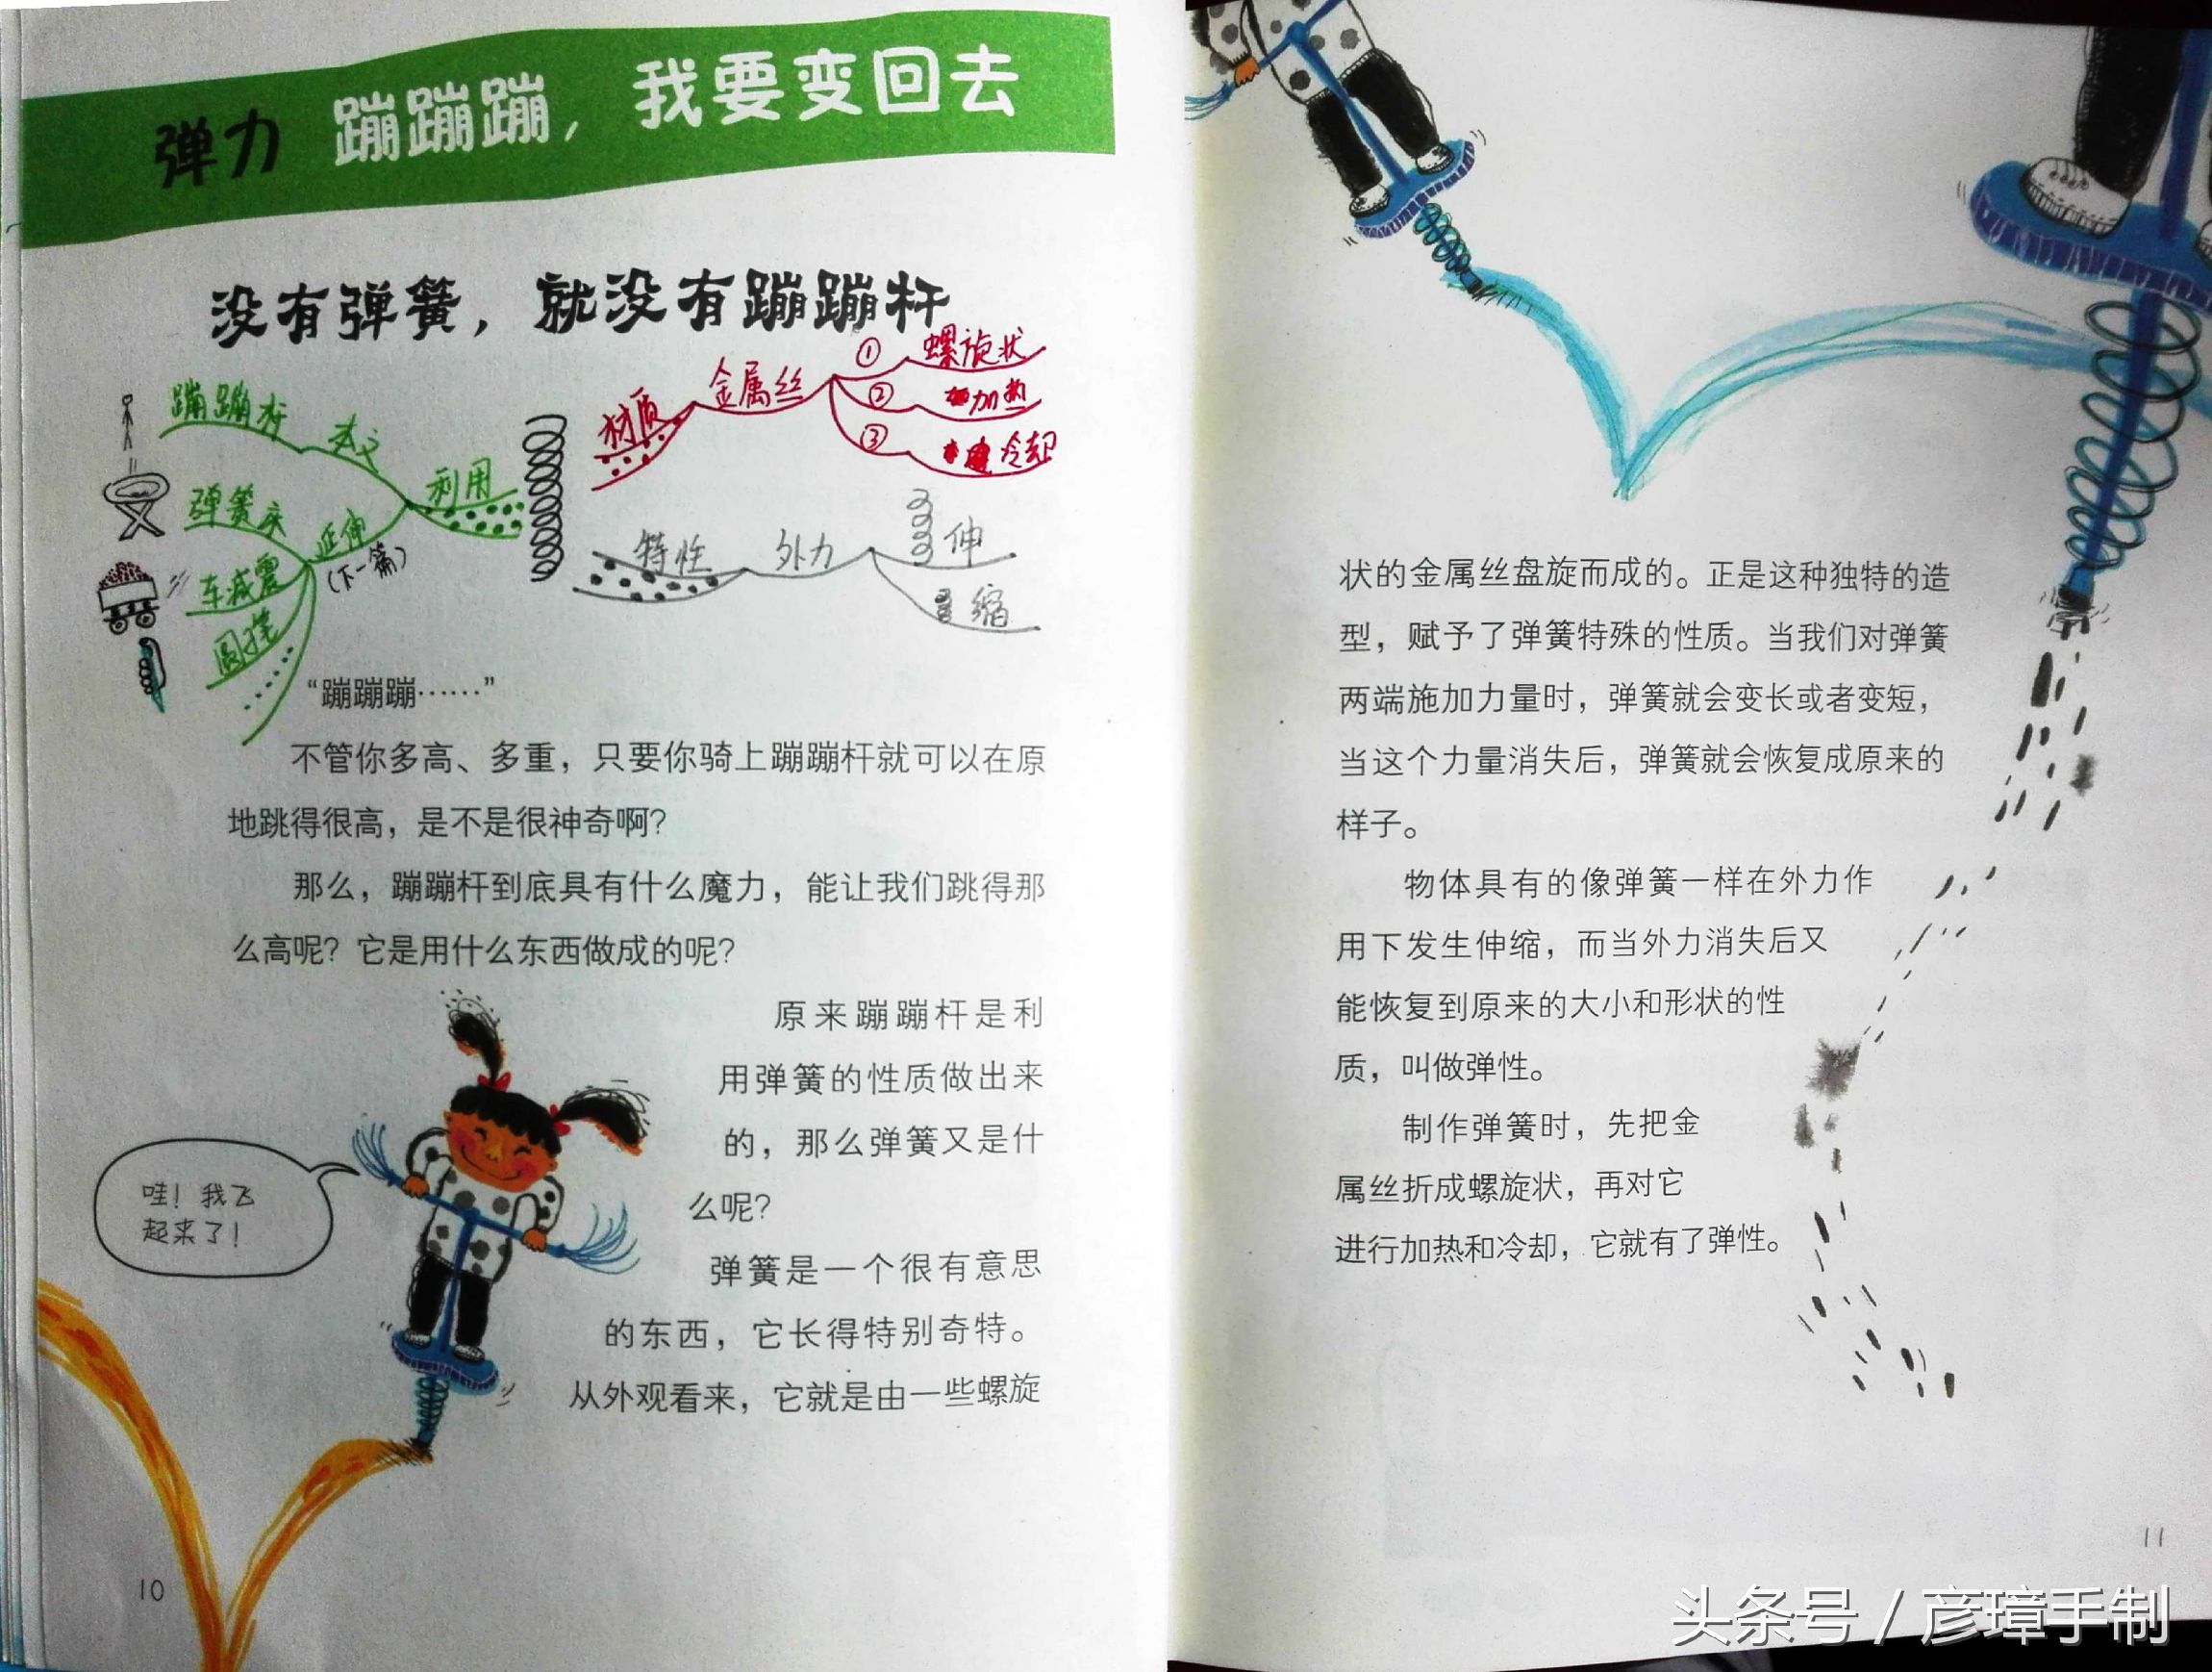 弹力 蹦蹦蹦，我要变回去
没有弹簧，就没有蹦蹦杆
蹦蹦杆
本文
弹簧床
延伸
(下一篇)
车减震
利用
材质
金属丝
① 螺旋状
② 加热
③ 冷却
特性
外力
伸
缩
“蹦蹦蹦……”
不管你多高、多重，只要你骑上蹦蹦杆就可以在原
地跳得很高，是不是很神奇啊？
那么，蹦蹦杆到底具有什么魔力，能让我们跳得那
么高呢？它是用什么东西做成的呢？
原来蹦蹦杆是利
用弹簧的性质做出来
的，那么弹簧又是什
么呢？
哇！我飞
起来了！
弹簧是一个很有意思
的东西，它长得特别奇特。
从外观看来，它就是由一些螺旋
10
状的金属丝盘旋而成的。正是这种独特的造
型，赋予了弹簧特殊的性质。当我们对弹簧
两端施加力量时，弹簧就会变长或者变短，
当这个力量消失后，弹簧就会恢复成原来的
样子。
物体具有的像弹簧一样在外力作
用下发生伸缩，而当外力消失后又
能恢复到原来的大小和形状的性
质，叫做弹性。
制作弹簧时，先把金
属丝折成螺旋状，再对它
进行加热和冷却，它就有了弹性。
11
头条号 / 彦璋手制